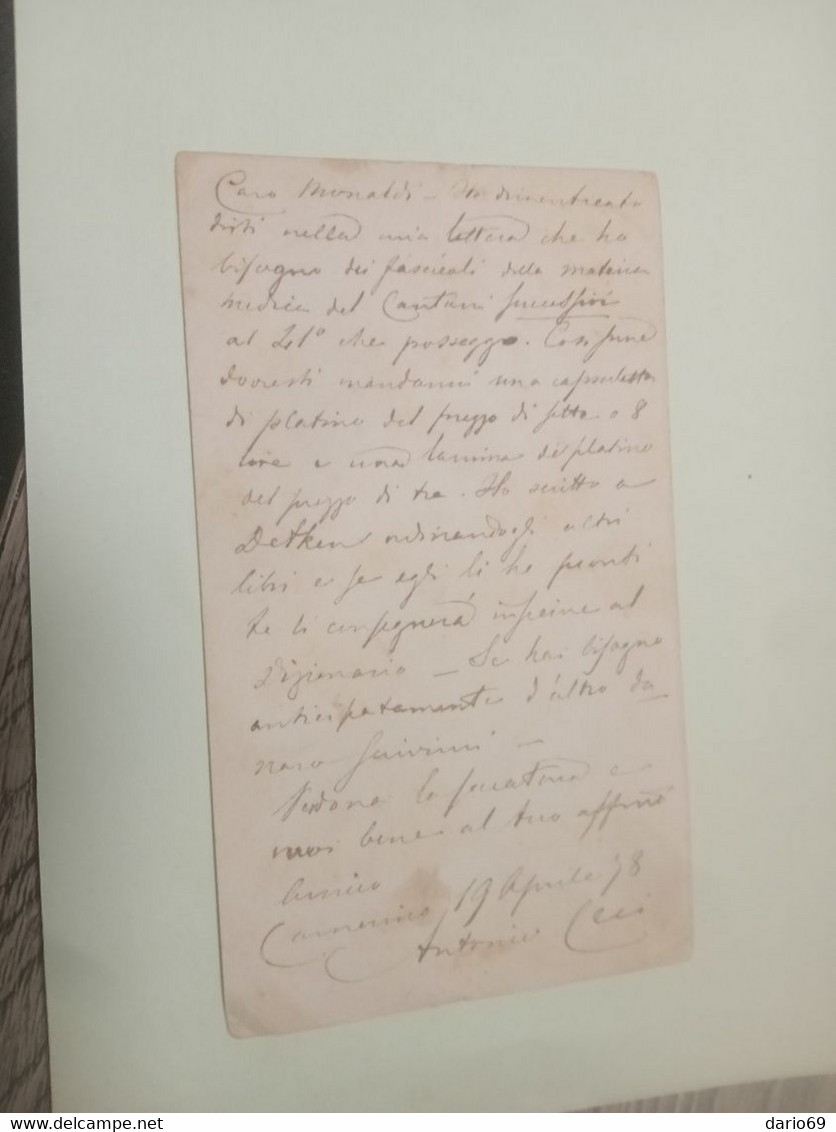 Caro Monaldi – Ho dimenticato
dirti nella mia lettera che ho
bisogno dei fascicoli della materia
medica del Cantani successivi
al 21° che posseggo. Così pure
dovresti mandarmi una capsuletta
di platino del prezzo di sette o 8
lire e una lamina di platino
del prezzo di tre. Ho scritto a
Detken ordinandogli altri
libri e se egli li ha pronti
te li consegnerà insieme al
Dizionario – Se hai bisogno
anticipatamente d'altro da
naro scrivimi –
Perdona la seccatura e
vuoi bene al tuo affmo
Amico
Camerino 19 Aprile 78
Antonio Ceci
dario69